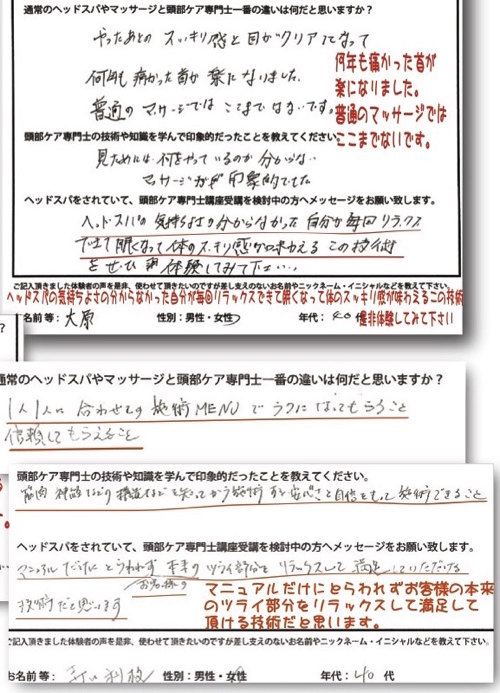 通常のヘッドスパやマッサージと頭部ケア専門士一番の違いは何だと思いますか？
やったあとの スッキリ感と目がクリアになって
何年も痛かった首が楽になりました。
普通の マッサージでは ここまではないです。
何年も痛かった首が
楽になりました。
普通のマッサージでは
ここまでないです。
頭部ケア専門士の技術や知識を学んで印象的だったことを教えてください
見ためには 何をやっているのか 分からない
マッサージが 印象的でした
ヘッドスパをされていて、頭部ケア専門士講座受講を検討中の方へメッセージをお願い致します。
ヘッドスパの気持ちよさの分からなかった自分が毎回リラックス
できて眠くなって体のスッキリ感が味わえる この技術
をぜひ 体験してみて下さい...
ご記入頂きました体験者の声を是非、使わせて頂きたいのですが差し支えのないお名前やニックネーム・イニシャルなどを教えて下さい。
ヘッドスパの気持ちよさの分からなかった自分が毎回リラックスできて眠くなって体のスッキリ感が味わえるこの技術
是非体験してみて下さい
名前等： 大原 性別：男性・女性 年代：
？
通常のヘッドスパやマッサージと頭部ケア専門士一番の違いは何だと思いますか？
1人1人に 合わせての 施術MENUで ラクになってもらうこと
信頼してもらえること
頭部ケア専門士の技術や知識を学んで印象的だったことを教えてください。
筋肉 神経などの 構造などを知ってから施術する 安心さと自信をもって 施術できること
ヘッドスパをされていて、頭部ケア専門士講座受講を検討中の方へメッセージをお願い致します。
マニュアルだけに とらわれず 本来の ツライ部分を リラックスして 満足していただける
お客様の
技術だと思います
マニュアルだけにとらわれずお客様の本来
のツライ部分をリラックスして満足して
頂ける技術だと思います。
ご記入頂きました体験者の声を是非、使わせて頂きたいのですが差し支えのないお名前やニックネーム・イニシャルなどを教えて下さい。
お名前等： 性別：男性・ 年代：40 代